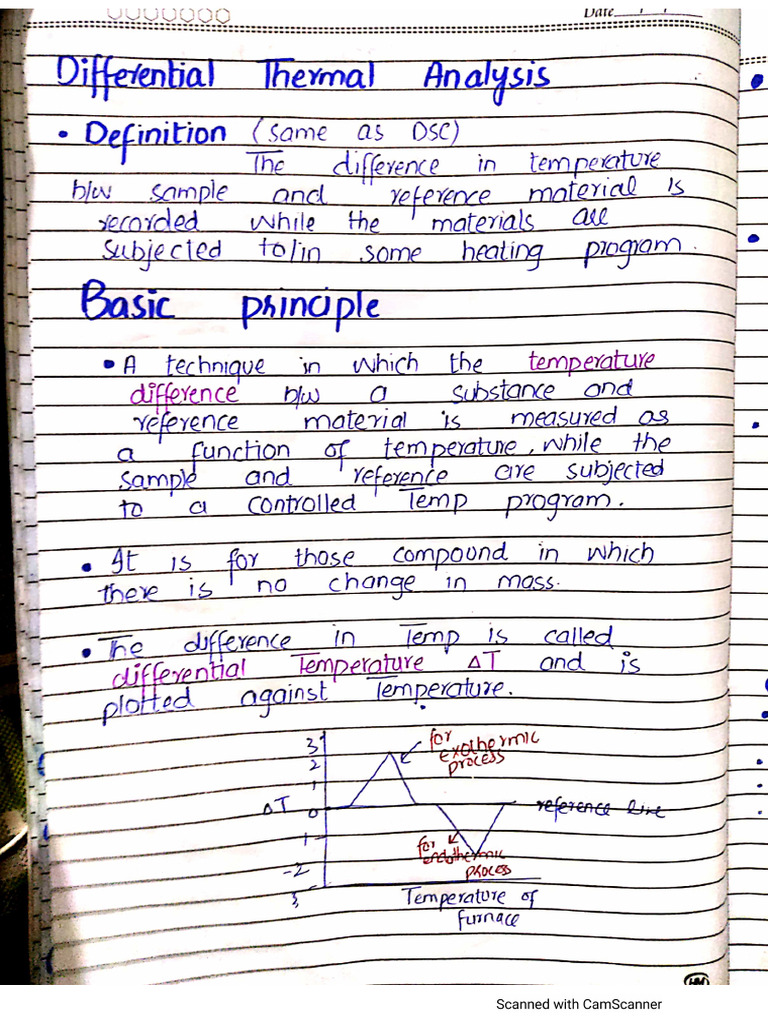 Date
Differential Thermal Analysis
• Definition (same as DSC)
The difference in temperature
b/w sample and reference material is
recorded while the materials are
subjected to/in some heating program.
Basic principle
• A technique in which the temperature
difference b/w a substance and
reference material is measured as
a function of temperature, while the
sample and reference are subjected
to a controlled Temp program.
• It is for those compound in which
there is no change in mass.
• The difference in Temp is called
differential Temperature ΔT and is
plotted against Temperature.
3
2
1
ΔT
0
1
-2
3
for
exothermic
process
reference line
for
endothermic
process
Temperature of
furnace
Scanned with CamScanner